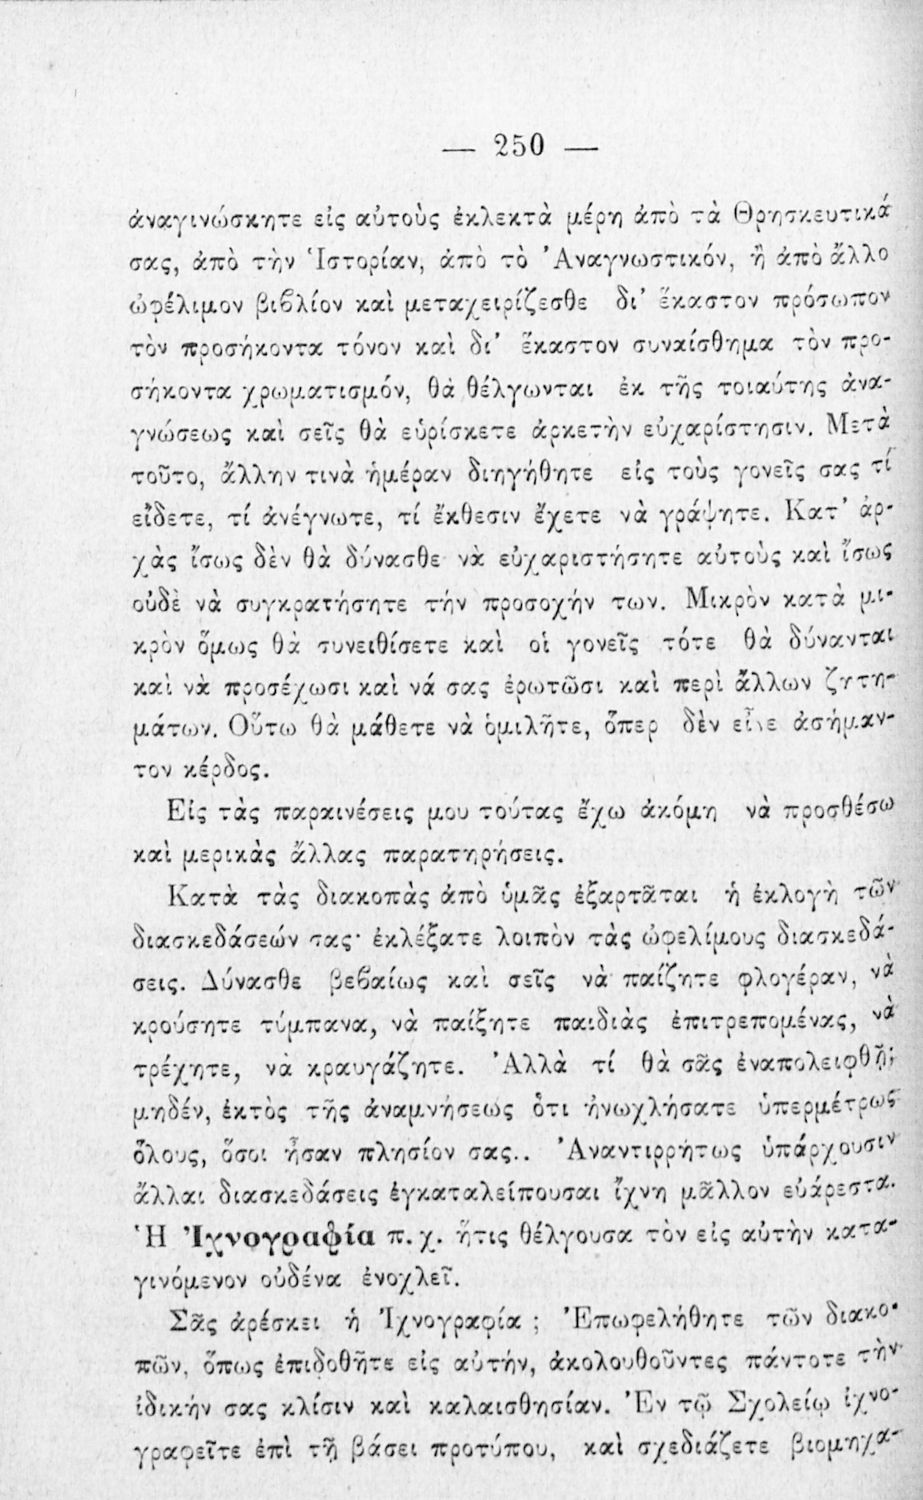 — 250 —
ἀναγινώσκητε εἰς αὐτοὺς ἐκλεκτὰ μέρη ἀπὸ τὰ Θρησκευτικά
σας, ἀπὸ τὴν Ἱστορίαν, ἀπὸ τὸ Ἀναγνωστικόν, ἢ ἀπὸ ἄλλο
ὠφέλιμον βιβλίον καὶ μεταχειρίζεσθε δι' ἕκαστον πρόσωπον
τὸν προσήκοντα τόνον καὶ δι' ἕκαστον συναίσθημα τὸν προ-
σήκοντα χρωματισμόν, θὰ θέλγωνται ἐκ τῆς τοιαύτης ἀνα-
γνώσεως καὶ σεῖς θὰ εὑρίσκετε ἀρκετὴν εὐχαρίστησιν. Μετὰ
τοῦτο, ἄλλην τινὰ ἡμέραν διηγήθητε εἰς τοὺς γονεῖς σας τί
εἴδετε, τί ἀνέγνωτε, τί ἔκθεσιν ἔχετε νὰ γράψητε. Κατ' ἀρ-
χὰς ἴσως δὲν θὰ δύνασθε νὰ εὐχαριστήσητε αὐτοὺς καὶ ἴσως
οὐδὲ νὰ συγκρατήσητε τήν προσοχήν των. Μικρὸν κατὰ μι-
κρὸν ὅμως θὰ συνειθίσετε καὶ οἱ γονεῖς τότε θὰ δύνανται
καὶ νὰ προσέχωσι καὶ νά σας ἐρωτῶσι καὶ περὶ ἄλλων ζητη-
μάτων. Οὕτω θὰ μάθετε νὰ ὁμιλῆτε, ὅπερ δὲν εἶνε ἀσήμαν-
τον κέρδος.
Εἰς τὰς παραινέσεις μου τούτας ἔχω ἀκόμη νὰ προσθέσω
καὶ μερικὰς ἄλλας παρατηρήσεις.
Κατὰ τὰς διακοπὰς ἀπὸ ὑμᾶς ἐξαρτᾶται ἡ ἐκλογὴ τῶν
διασκεδάσεών σας· ἐκλέξατε λοιπὸν τὰς ὠφελίμους διασκεδά-
σεις. Δύνασθε βεβαίως καὶ σεῖς νὰ παίζητε φλογέραν, νὰ
κρούσητε τύμπανα, νὰ παίξητε παιδιὰς ἐπιτρεπομένας, νὰ
τρέχητε, νὰ κραυγάζητε. Ἀλλὰ τί θὰ σᾶς ἐναπολειφθῇ;
μηδέν, ἐκτὸς τῆς ἀναμνήσεως ὅτι ἠνωχλήσατε ὑπερμέτρως
ὅλους, ὅσοι ἦσαν πλησίον σας.. Ἀναντιρρήτως ὑπάρχουσιν
ἄλλαι διασκεδάσεις ἐγκαταλείπουσαι ἴχνη μᾶλλον εὐάρεστα.
Ἡ Ἰχνογραφία π. χ. ἥτις θέλγουσα τὸν εἰς αὐτὴν κατα-
γινόμενον οὐδένα ἐνοχλεῖ.
Σᾶς ἀρέσκει ἡ Ἰχνογραφία ; Ἐπωφελήθητε τῶν διακο-
πῶν, ὅπως ἐπιδοθῆτε εἰς αὐτήν, ἀκολουθοῦντες πάντοτε τὴν
ἰδικήν σας κλίσιν καὶ καλαισθησίαν. Ἐν τῷ Σχολείῳ ἰχνο-
γραφεῖτε ἐπὶ τῇ βάσει προτύπου, καὶ σχεδιάζετε βιομηχα-